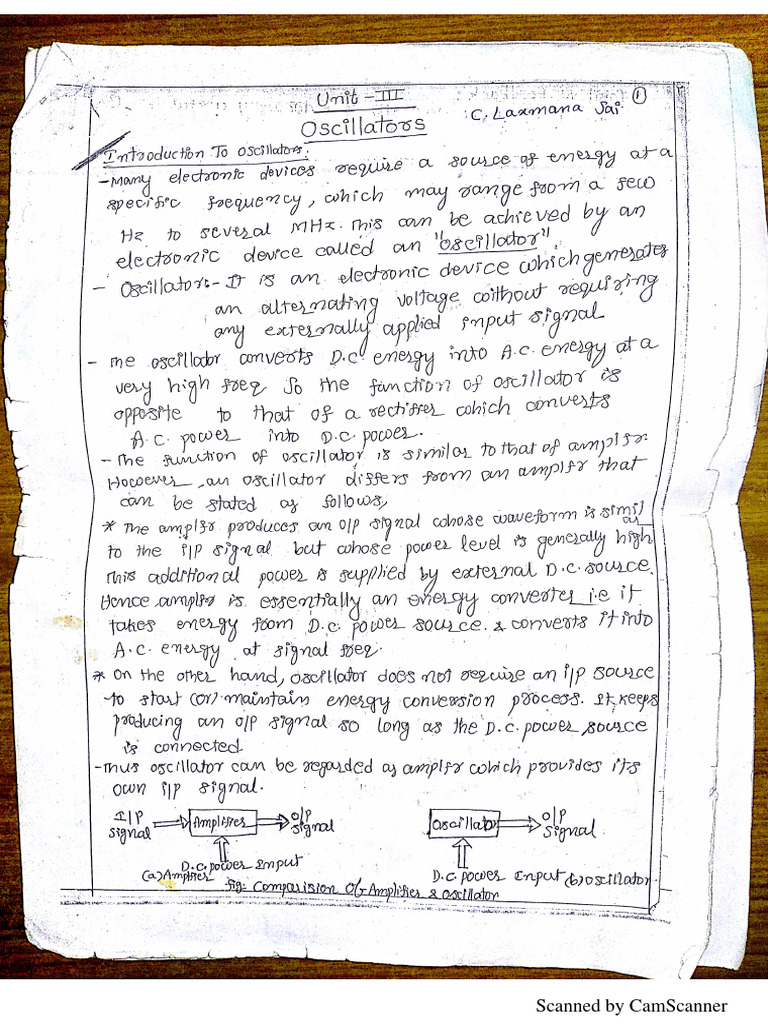 Unit - III
①
C. Laxmana Sai
Oscillators
Introduction To oscillators:
- Many electronic devices require a source of energy at a
specific frequency, which may range from a few
Hz to several MHz. This can be achieved by an
electronic device called an "oscillator".
- Oscillator:- It is an electronic device which generates
an alternating voltage without requiring
any externally applied input signal
- The oscillator converts D.C energy into A.C. energy at a
very high freq So the function of oscillator is
opposite to that of a rectifier which converts
A.C. power into D.C. power.
- The function of oscillator is similar to that of amplfr.
However, an oscillator differs from an amplfr that
can be stated as follows,
* The amplfr produces an o/p signal whose waveform is similar
to the i/p signal but whose power level is generally high
This additional power is supplied by external D.C. source.
Hence amplfr is essentially an energy converter i.e it
takes energy from D.C. power source. & converts it into
A.C. energy at signal freq.
* On the other hand, oscillator does not require an i/p source
to start (or) maintain energy conversion process. It keeps
producing an o/p signal so long as the D.C. power source
is connected.
- Thus oscillator can be regarded as amplfr which provides its
own i/p signal.
I/P signal
Amplifier
o/p signal
Oscillator
o/p signal
D.C. power Input
(a) Amplfier
D.C. power Input
(b) oscillator.
fig:- Comparision Of Amplifier & oscillator
Scanned by CamScanner